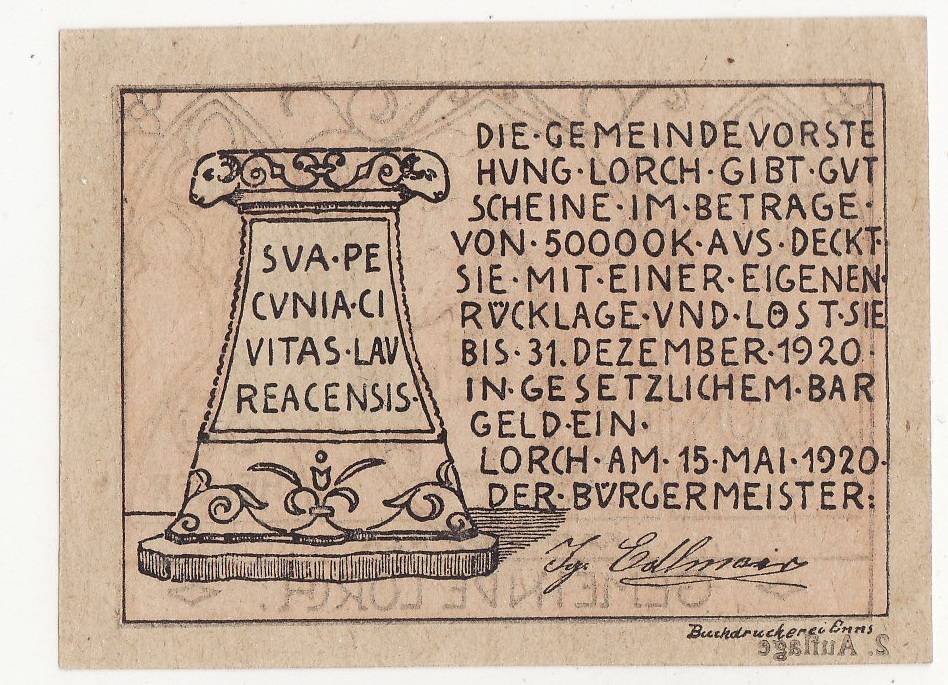 SVA·PE
CVNIA·CI
VITAS·LAV
REACENSIS·
DIE·GEMEINDEVORSTE
HVNG·LORCH·GIBT·GVT
SCHEINE·IM·BETRAGE·
VON·50000K·AVS·DECKT·
SIE·MIT·EINER·EIGENEN·
RÜCKLAGE·VND·LÖST·SIE
BIS·31.DEZEMBER·1920·
IN·GESETZLICHEM·BAR
GELD·EIN·
LORCH·AM·15·MAI·1920·
DER·BÜRGERMEISTER:
Buchdruckerei Enns
2. Auflage